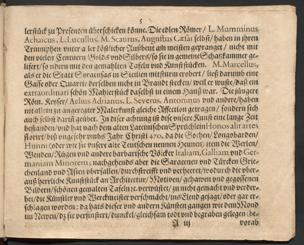 5
lerstück zu Presenten überschicken könne. Die edlen Römer/ L. Mummius
Achaicus, L. Lucullus, M. Scaurus, Augustus Cæsar selbst/ haben in ihren
Triumphen unter aller köstlicher Ausbeut am meisten gepranget/ nicht mit
den vielen Centnern Golds und Silbers/ so sie in gemeine Schatzkammer geliefert/
sondern mit den gemahlten Tafeln und Kunststücken. M. Marcellus,
als er die Statt Syracusas in Sicilien mit Sturm erobert/ ließ darum eine
Gasse oder Quartir derselben nicht in Brand stecken/ weil er wuste/ daß ein
extraordinari schön Mahlerstück daselbst in einem Hauß war. Die jüngere
Röm. Keyser/ Aelius Adrianus, L. Severus, Antoninus und andere/ haben
nit allein zu antiquer Mahlerkunst gleiche Affection getragen/ sondern sich
auch selbst darauf geübt. In dieser achtung ist diese unsere Kunst eine lange Zeit
bestanden/ und hat nach dem alten Lateinischen Sprichwort Honos alit artes
floriret biß ungefehr ins Jahr Christi 470. da die Gothen/ Longobarden/
Hunni (oder wie sie unsere alte Teutschen nennen Heunen) item die Werlen/
Wenden/ Rügen und andere barbarische Völcker Italiam, Galliam und Germaniam
Mitnocent; nachgehends aber die Saracenen und Türcken Griechenland
und Asien überfallen/ durchstreifft und verheeret/ wodurch die überauß
herrliche Kunststück an Architectur/ Motiven/ gehauen und gegossenen
Bildern/ schönen gemalten Tafeln &c. verwüstet/ zu nicht gemacht und verderbet/
die Künstler und Werckmeister verschmächt/ ins Elend gejagt/ oder gar erschlagen
worden; da hats dieser und andern Künsten gangen wie dem Mond
im Neuen/ daß sie verfinstert/ dunckel/ gleichsam todt und begraben gelegen (bevorab
A iij
vorab